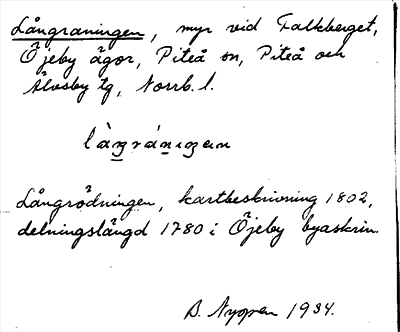 Långraningen, myr vid Falkberget,
Öjeby ägor, Piteå sn, Piteå och
Älvsby tg, Norrb. l.
làŋ̲ráni̲gɛn
Långrödningen, kartbeskrivning 1802,
delningslängd 1780 i Öjeby byaskrin.
B. Nyppen 1934.